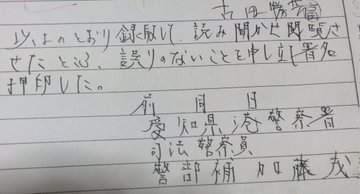 以上のとおり録取して、読み聞かせ閲覧さ
せたところ、誤りのないことを申し立て署名
押印した。
前同日
愛知県港警察署
司法警察員
警部補 加藤